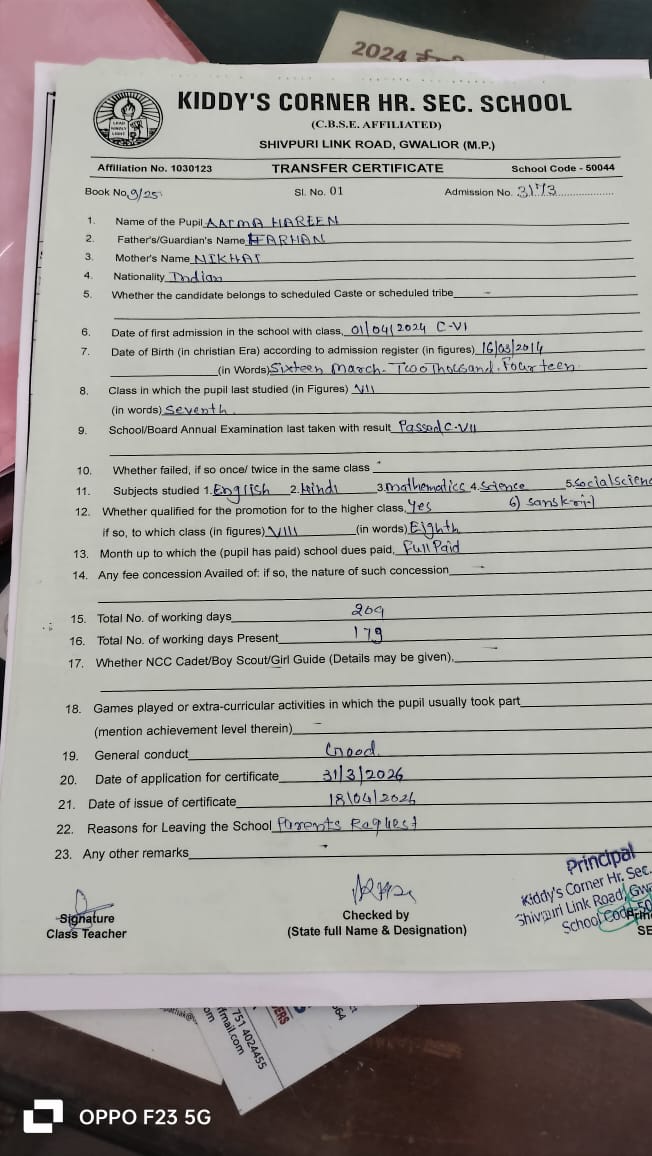 2024
KIDDY'S CORNER HR. SEC. SCHOOL
(C.B.S.E. AFFILIATED)
SHIVPURI LINK ROAD, GWALIOR (M.P.)
Affiliation No. 1030123 TRANSFER CERTIFICATE School Code - 50044
Book No. 9/25 Sl. No. 01 Admission No. 3173
1. Name of the Pupil AATMA HAREEN
2. Father's/Guardian's Name FARHAN
3. Mother's Name NIKHAT
4. Nationality Indian
5. Whether the candidate belongs to scheduled Caste or scheduled tribe -
6. Date of first admission in the school with class. 01/04/2024 C-VI
7. Date of Birth (in christian Era) according to admission register (in figures) 16/03/2014
(in Words) Sixteen March. Two Thousand. Fourteen
8. Class in which the pupil last studied (in Figures) VII
(in words) Seventh
9. School/Board Annual Examination last taken with result Passed C-VII
10. Whether failed, if so once/ twice in the same class -
11. Subjects studied 1. English 2. Hindi 3. mathematics 4. Science 5. Social Scienc
6) Sanskrit
12. Whether qualified for the promotion for to the higher class, Yes
if so, to which class (in figures) VIII (in words) Eighth
13. Month up to which the (pupil has paid) school dues paid, Full Paid
14. Any fee concession Availed of: if so, the nature of such concession -
15. Total No. of working days 209
16. Total No. of working days Present 179
17. Whether NCC Cadet/Boy Scout/Girl Guide (Details may be given). -
18. Games played or extra-curricular activities in which the pupil usually took part
(mention achievement level therein) -
19. General conduct Good
20. Date of application for certificate 31/3/2026
21. Date of issue of certificate 18/04/2026
22. Reasons for Leaving the School Parents Request
23. Any other remarks -
Principal
Kiddy's Corner Hr. Sec.
Shivpuri Link Road, Gw
School Code-50
SE
Signature
Class Teacher
Checked by
(State full Name & Designation)
751 4024455
mail.com
OPPO F23 5G